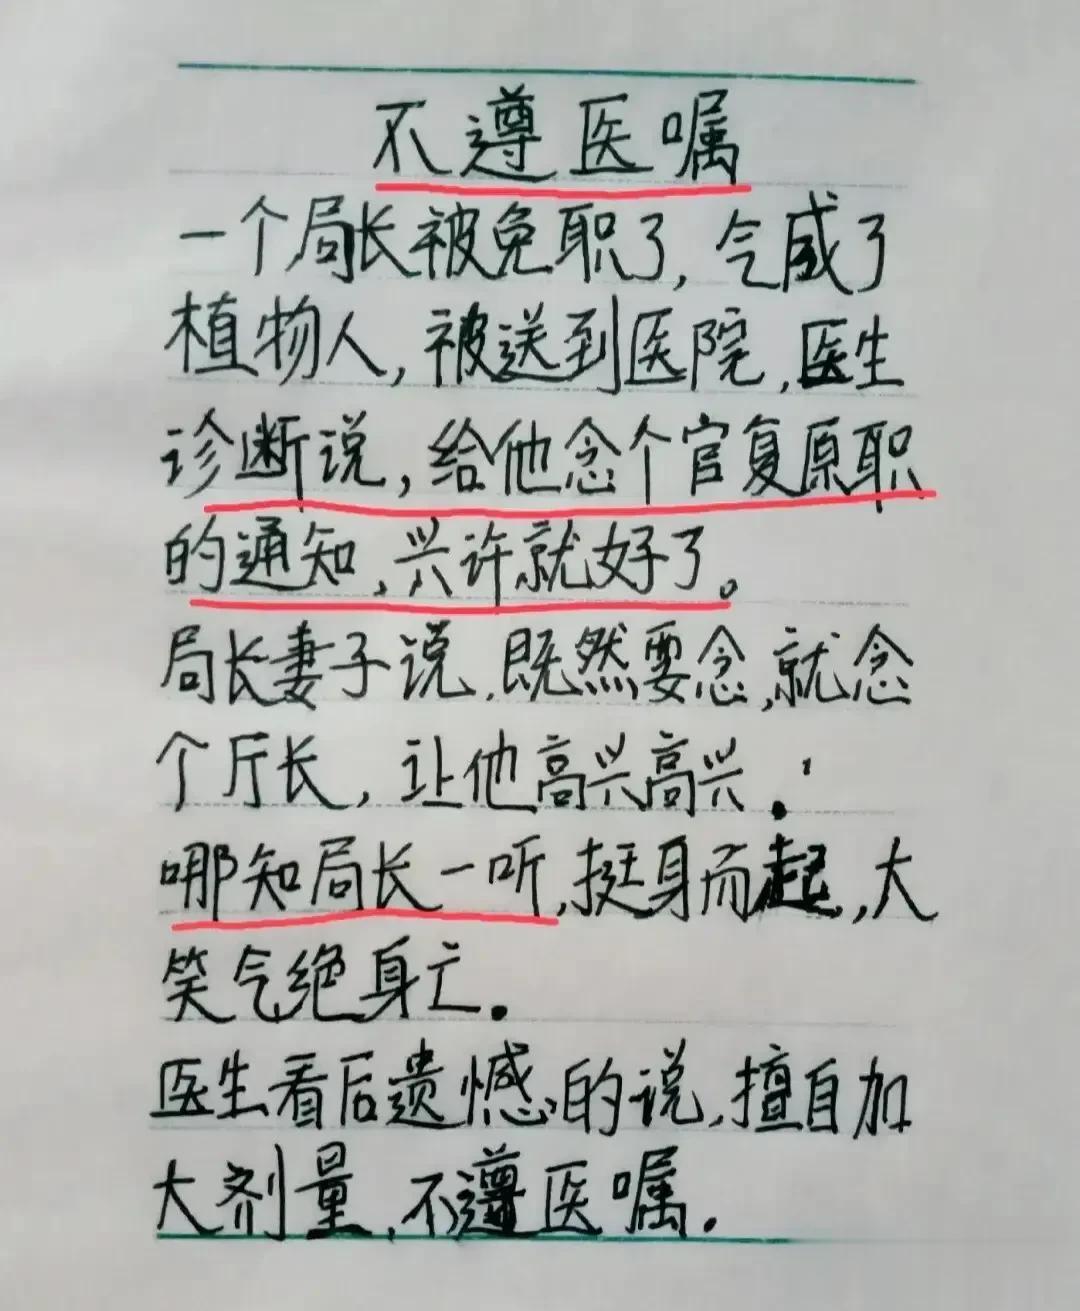 不遵医嘱
一个局长被免职了,气成了
植物人,被送到医院,医生
诊断说,给他念个官复原职
的通知,兴许就好了。
局长妻子说,既然要念,就念
个厅长,让他高兴高兴.
哪知局长一听,挺身而起,大
笑气绝身亡.
医生看后遗憾的说,擅自加
大剂量,不遵医嘱.